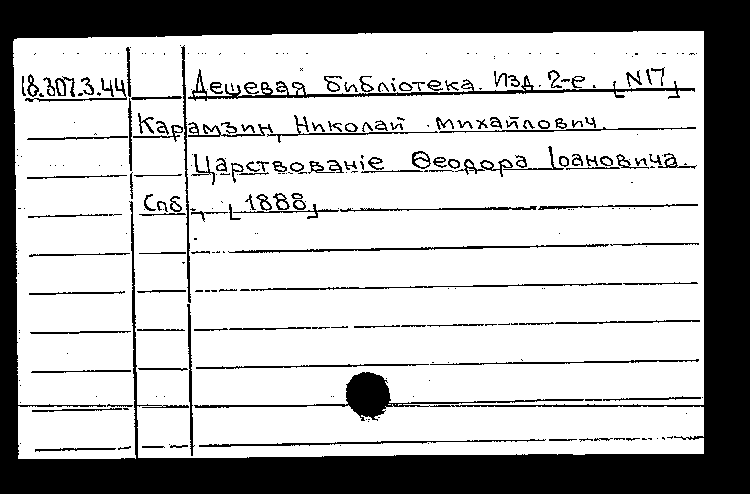 18.307.3.44 Дешевая библіотека. Изд. 2-е. [N17]
Карамзин, Николай Михайлович.
Царствованіе Ѳеодора Іоановича.
Спб., [1888]